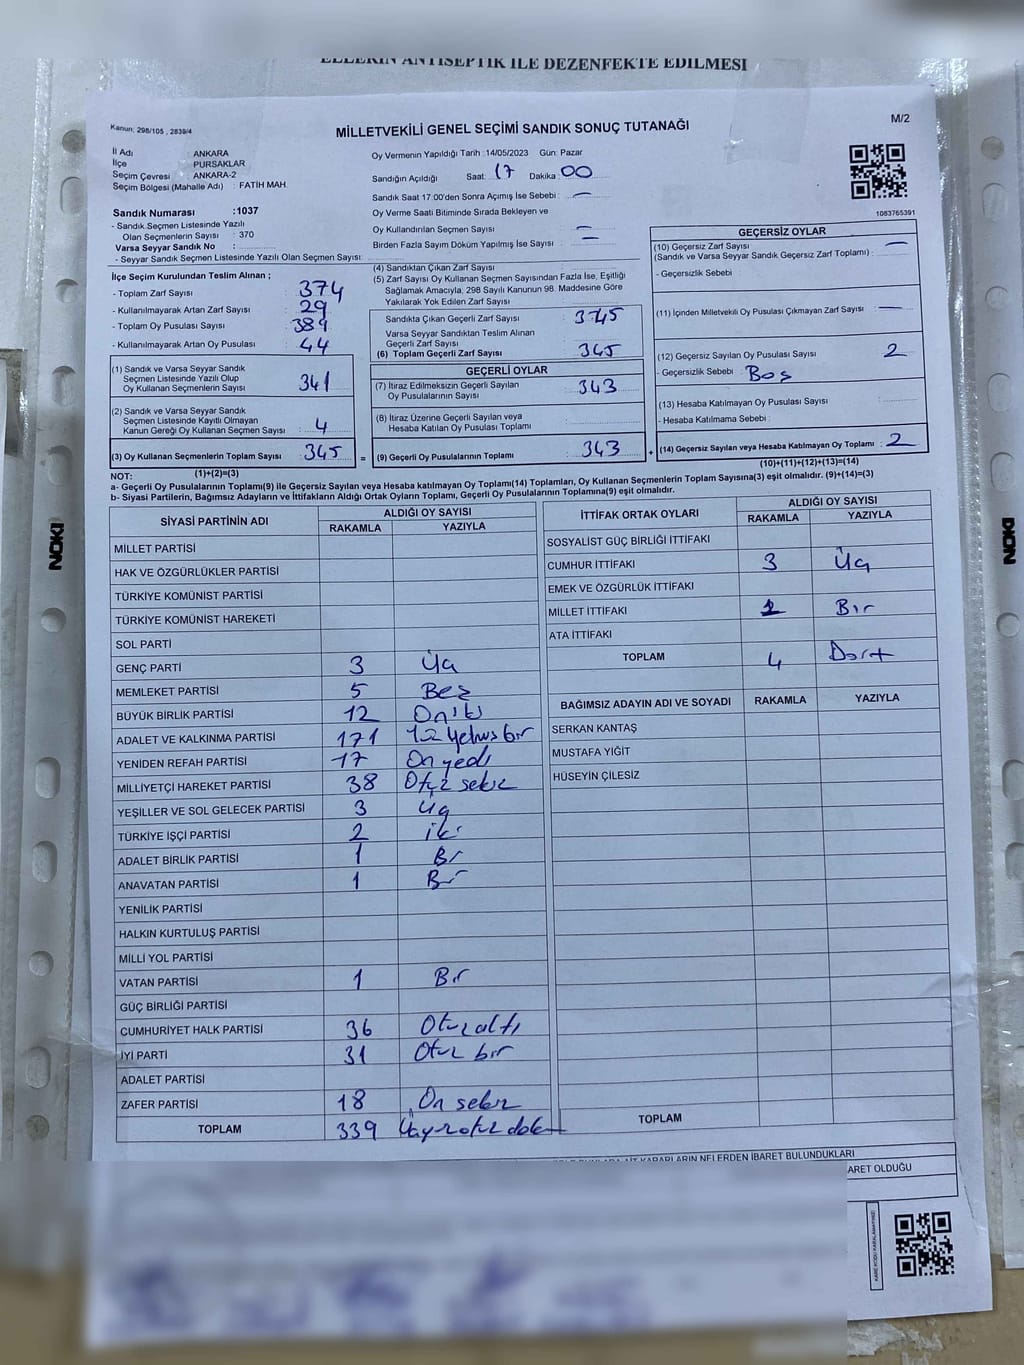 ELLERİN ANTİSEPTİK İLE DEZENFEKTE EDİLMESİ
Kanun: 298/105 , 2839/4
MİLLETVEKİLİ GENEL SEÇİMİ SANDIK SONUÇ TUTANAĞI
M/2
İl Adı : ANKARA
İlçe : PURSAKLAR
Seçim Çevresi : ANKARA-2
Seçim Bölgesi (Mahalle Adı) : FATİH MAH.
Sandık Numarası :1037
- Sandık Seçmen Listesinde Yazılı
Olan Seçmenlerin Sayısı : 370
Varsa Seyyar Sandık No :
- Seyyar Sandık Seçmen Listesinde Yazılı Olan Seçmen Sayısı:
Oy Vermenin Yapıldığı Tarih :14/05/2023 Gün: Pazar
Sandığın Açıldığı Saat: 17 Dakika: 00
Sandık Saat 17:00'den Sonra Açımış İse Sebebi : —
Oy Verme Saati Bitiminde Sırada Bekleyen ve
Oy Kullandırılan Seçmen Sayısı : —
Birden Fazla Sayım Döküm Yapılmış İse Sayısı : —
1083765391
İlçe Seçim Kurulundan Teslim Alınan ;
- Toplam Zarf Sayısı : 374
- Kullanılmayarak Artan Zarf Sayısı : 29
- Toplam Oy Pusulası Sayısı : 389
- Kullanılmayarak Artan Oy Pusulası : 44
(1) Sandık ve Varsa Seyyar Sandık
Seçmen Listesinde Yazılı Olup
Oy Kullanan Seçmenlerin Sayısı : 341
(2) Sandık ve Varsa Seyyar Sandık
Seçmen Listesinde Kayıtlı Olmayan
Kanun Gereği Oy Kullanan Seçmen Sayısı : 4
(3) Oy Kullanan Seçmenlerin Toplam Sayısı : 345
(1)+(2)=(3)
(4) Sandıktan Çıkan Zarf Sayısı :
(5) Zarf Sayısı Oy Kullanan Seçmen Sayısından Fazla İse, Eşitliği
Sağlamak Amacıyla, 298 Sayılı Kanunun 98. Maddesine Göre
Yakılarak Yok Edilen Zarf Sayısı :
Sandıkta Çıkan Geçerli Zarf Sayısı : 345
Varsa Seyyar Sandıktan Teslim Alınan
Geçerli Zarf Sayısı :
(6) Toplam Geçerli Zarf Sayısı : 345
GEÇERLİ OYLAR
(7) İtiraz Edilmeksizin Geçerli Sayılan
Oy Pusulalarının Sayısı : 343
(8) İtiraz Üzerine Geçerli Sayılan veya
Hesaba Katılan Oy Pusulası Toplamı :
= (9) Geçerli Oy Pusulalarının Toplamı : 343
GEÇERSİZ OYLAR
(10) Geçersiz Zarf Sayısı
(Sandık ve Varsa Seyyar Sandık Geçersiz Zarf Toplamı) : —
- Geçersizlik Sebebi
(11) İçinden Milletvekili Oy Pusulası Çıkmayan Zarf Sayısı : —
(12) Geçersiz Sayılan Oy Pusulası Sayısı : 2
- Geçersizlik Sebebi : Boş
(13) Hesaba Katılmayan Oy Pusulası Sayısı :
- Hesaba Katılmama Sebebi :
+ (14) Geçersiz Sayılan veya Hesaba Katılmayan Oy Toplamı : 2
(10)+(11)+(12)+(13)=(14)
NOT:
a- Geçerli Oy Pusulalarının Toplamı(9) ile Geçersiz Sayılan veya Hesaba katılmayan Oy Toplamı(14) Toplamları, Oy Kullanan Seçmenlerin Toplam Sayısına(3) eşit olmalıdır. (9)+(14)=(3)
b- Siyasi Partilerin, Bağımsız Adayların ve İttifakların Aldığı Ortak Oyların Toplamı, Geçerli Oy Pusulalarının Toplamına(9) eşit olmalıdır.
SİYASİ PARTİNİN ADI ALDIĞI OY SAYISI
RAKAMLA YAZIYLA
MİLLET PARTİSİ
HAK VE ÖZGÜRLÜKLER PARTİSİ
TÜRKİYE KOMÜNİST PARTİSİ
TÜRKİYE KOMÜNİST HAREKETİ
SOL PARTİ
GENÇ PARTİ 3 Üç
MEMLEKET PARTİSİ 5 Beş
BÜYÜK BİRLİK PARTİSİ 12 Oniki
ADALET VE KALKINMA PARTİSİ 171 Yüz Yetmiş bir
YENİDEN REFAH PARTİSİ 17 On yedi
MİLLİYETÇİ HAREKET PARTİSİ 38 Otuz sekiz
YEŞİLLER VE SOL GELECEK PARTİSİ 3 Üç
TÜRKİYE İŞÇİ PARTİSİ 2 iki
ADALET BİRLİK PARTİSİ 1 Bir
ANAVATAN PARTİSİ 1 Bir
YENİLİK PARTİSİ
HALKIN KURTULUŞ PARTİSİ
MİLLİ YOL PARTİSİ
VATAN PARTİSİ 1 Bir
GÜÇ BİRLİĞİ PARTİSİ
CUMHURİYET HALK PARTİSİ 36 Otuz altı
İYİ PARTİ 31 Otuz bir
ADALET PARTİSİ
ZAFER PARTİSİ 18 On sekiz
TOPLAM 339 Üçyüzotuz dokuz
İTTİFAK ORTAK OYLARI ALDIĞI OY SAYISI
RAKAMLA YAZIYLA
SOSYALİST GÜÇ BİRLİĞİ İTTİFAKI
CUMHUR İTTİFAKI 3 Üç
EMEK VE ÖZGÜRLÜK İTTİFAKI
MİLLET İTTİFAKI 1 Bir
ATA İTTİFAKI
TOPLAM 4 Dört
BAĞIMSIZ ADAYIN ADI VE SOYADI RAKAMLA YAZIYLA
SERKAN KANTAŞ
MUSTAFA YİĞİT
HÜSEYİN ÇİLESİZ
TOPLAM
KARARLARIN NELERDEN İBARET BULUNDUKLARI
BARET OLDUĞU
NOKI
NOKI